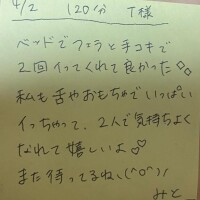 4/2 (120分) T様
ベッドでフェラと手コキで
2回イってくれて良かった♡
私も舌やおもちゃでいっぱい
イっちゃって、2人で気持ちよく
なれて嬉しいよ♡
また待ってるね、(^o^)/
みと